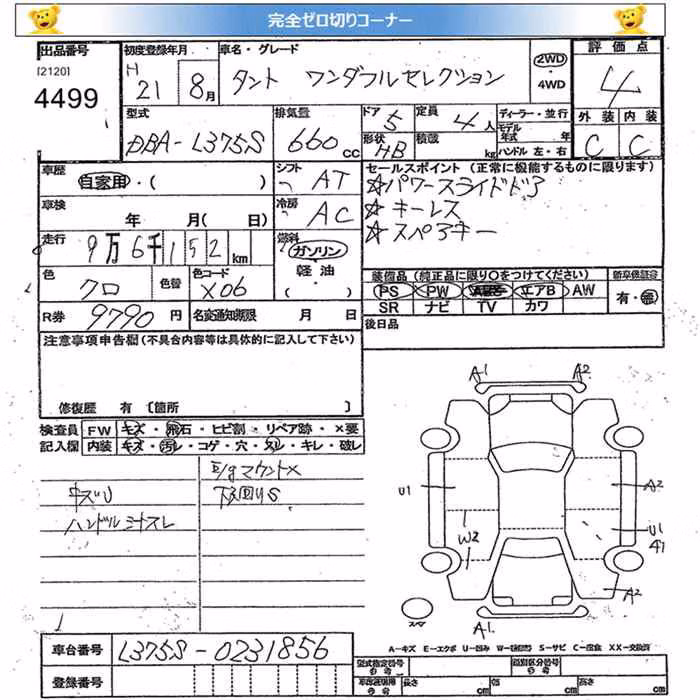 完全ゼロ切りコーナー
出品番号
[2120]
4499
初度登録年月
H
21
8月
車名・グレード
タント ワンダフルセレクション
2WD
・
4WD
評価点
4
外装 内装
C C
型式
DBA-L375S
排気量
660cc
ドア
5
形状
HB
定員
4人
積載
kg
ディーラー・並行
モデル年式 年
ハンドル 左・右
車歴
自家用・( )
シフト
AT
車検
年 月( 日)
冷房
AC
走行
9万6千152km
燃料
ガソリン
軽油
・( )
色
クロ
色替
色コード
X06
R券
9790円
名変通知期限 月 日
セールスポイント (正常に機能するものに限ります)
☆パワースライドドア
☆キーレス
☆スペアキー
装備品 (純正品に限り○をつけてください)
PS PW ABS エアB AW
SR ナビ TV カワ
新車保証書
有・無
後日品
注意事項申告欄 (不具合内容等は具体的に記入して下さい)
修復歴 有 [箇所 ]
検査員
記入欄
FW キズ・飛石・ヒビ割・リペア跡・×要
内装 キズ・汚レ・コゲ・穴・スレ・キレ・破レ
E/gマウント×
キズU
下回りS
ハンドルシミスレ
A1
A2
U1
A2
W2
U1
A1
A2
スマ
A1
A=キズ E=エクボ U=凹み W=S=サビ C=腐食 XX=交換済
車台番号
L375S-0231856
登録番号
型式指定番号
類別区分番号
長さ cm 幅 cm 高さ cm